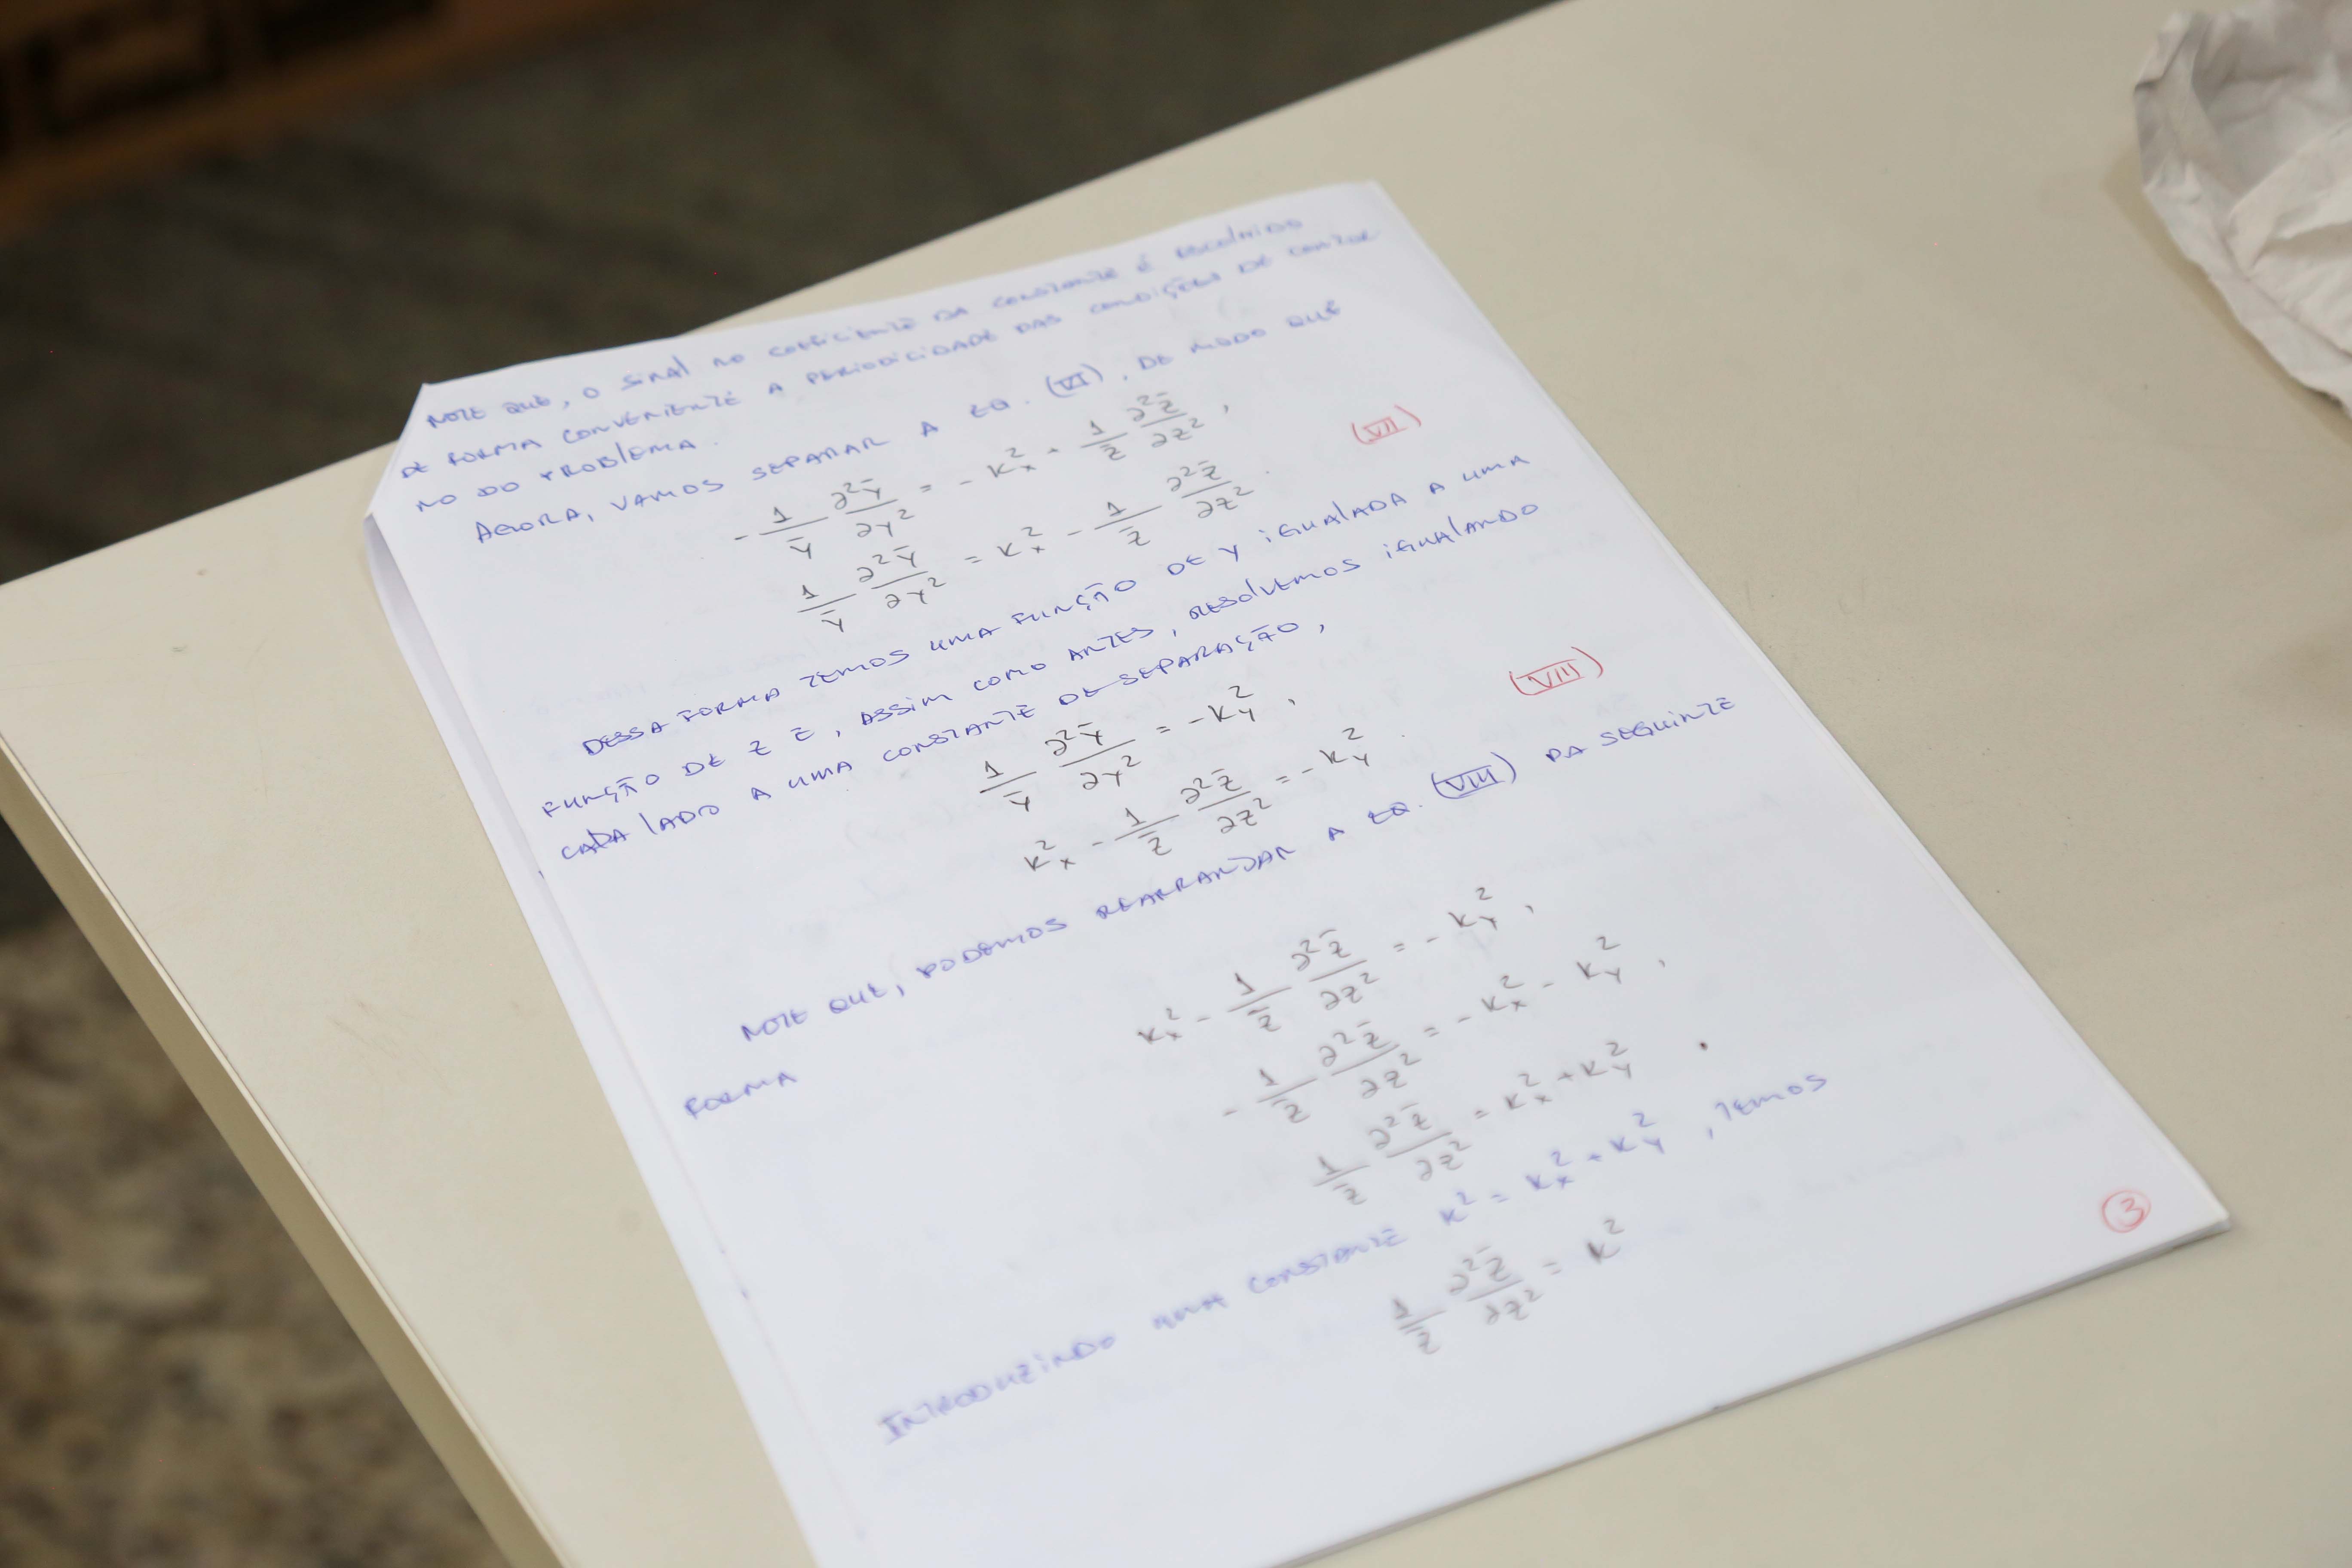 NOTE QUE, O SINAL NO COEFICIENTE DA CONSTANTE É ESCOLHIDO
DE FORMA CONVENIENTE A PERIODICIDADE DAS CONDIÇÕES DE CONTOR-
NO DO PROBLEMA.
AGORA, VAMOS SEPARAR A EQ. (VI), DE MODO QUE
- 1/Y̅ ∂²Y̅/∂Y² = - K²ₓ + 1/Z̅ ∂²Z̅/∂Z² ,
1/Y̅ ∂²Y̅/∂Y² = K²ₓ - 1/Z̅ ∂²Z̅/∂Z² . (VII)
DESSA FORMA TEMOS UMA FUNÇÃO DE Y IGUALADA A UMA
FUNÇÃO DE Z E, ASSIM COMO ANTES, RESOLVEMOS IGUALANDO
CADA LADO A UMA CONSTANTE DE SEPARAÇÃO,
1/Y̅ ∂²Y̅/∂Y² = - K_Y² ,
K²ₓ - 1/Z̅ ∂²Z̅/∂Z² = - K_Y² . (VIII)
NOTE QUE, PODEMOS REARRANJAR A EQ. (VIII) DA SEGUINTE
FORMA
K²ₓ - 1/Z̅ ∂²Z̅/∂Z² = - K_Y² ,
- 1/Z̅ ∂²Z̅/∂Z² = - K²ₓ - K_Y² ,
1/Z̅ ∂²Z̅/∂Z² = K²ₓ + K_Y² .
INTRODUZINDO UMA CONSTANTE K² = K²ₓ + K_Y² , TEMOS
1/Z̅ ∂²Z̅/∂Z² = K²
3